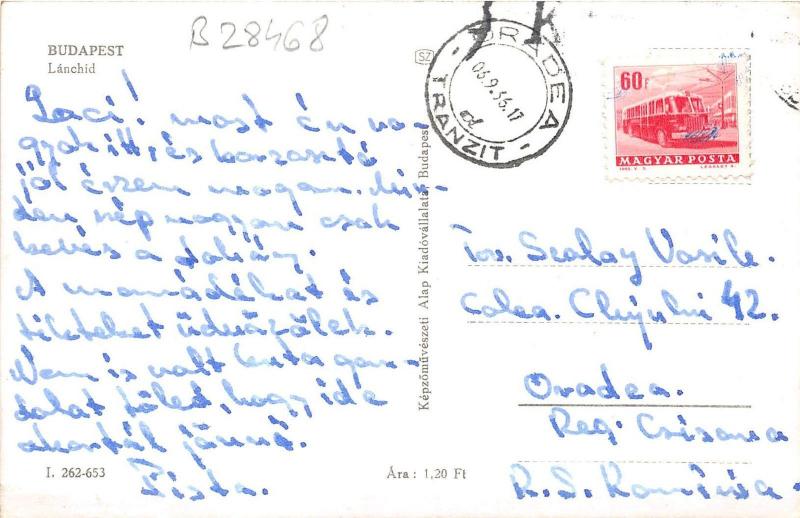 B 28468
BUDAPEST
Lánchíd
Laci! most én va-
gyok itt, és borzasztó
jól érzem magam. Min-
den nép magyar csak
kevés a
A mamádékat és
titeket üdvözölek.
Nem is volt buta gon-
dolat tőled, hogy ide
akartál jönni.
Pista.
I. 262-653
Ára: 1,20 Ft
Képzőművészeti Alap Kiadóvállalata, Budapest
SZ
ORADEA
TRANZIT
60f
MAGYAR POSTA
Tov. Szalay Vasile.
Calea. Clujului 42.
Oradea.
Reg. Crișana
R.S. România